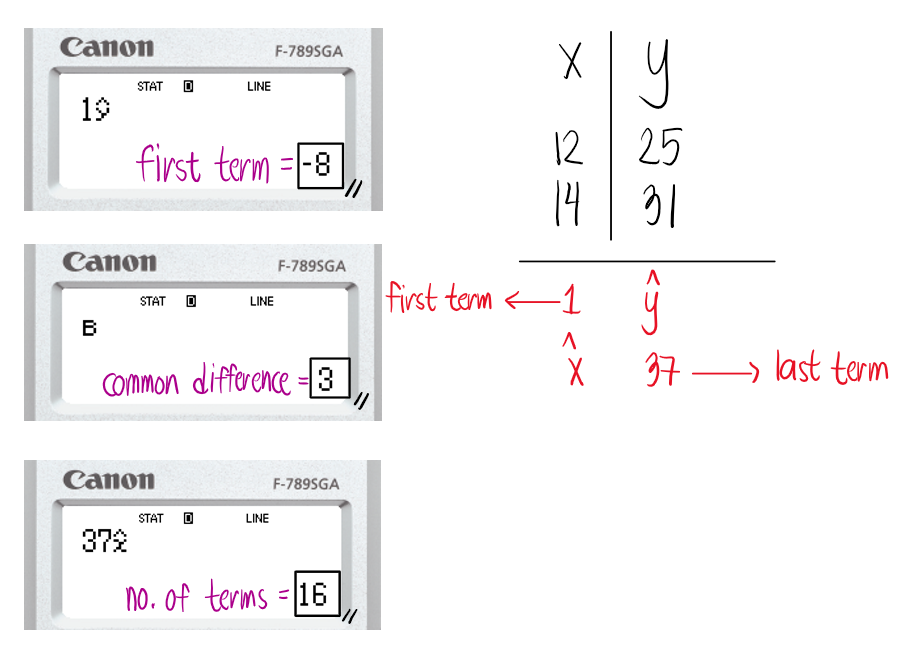 Canon
F-789SGA
STAT D LINE
1ŷ
first term = -8 //
Canon
F-789SGA
STAT D LINE
B
common difference = 3 //
Canon
F-789SGA
STAT D LINE
37x̂
no. of terms = 16 //
x y
12 25
14 31
first term ← 1 ŷ
x̂ 37 → last term